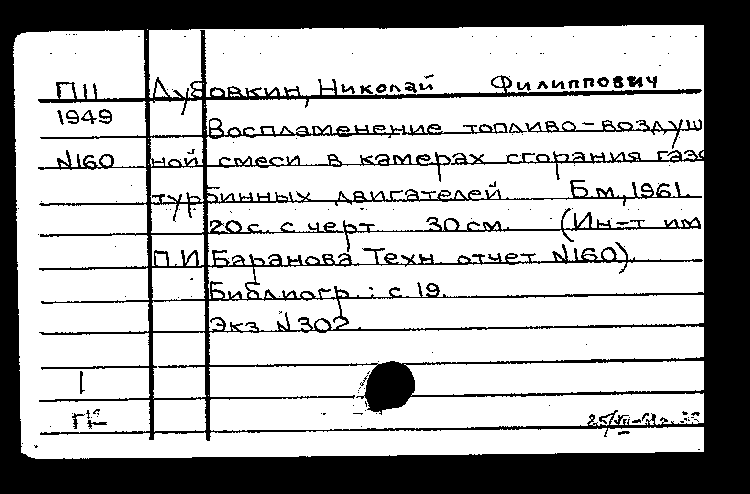 П11 Дубовкин, Николай Филиппович
1949
Воспламенение топливо-воздуш
N160 ной смеси в камерах сгорания газо
турбинных двигателей Б.м., 1961.
20 с. с черт. 30 см. (Ин-т им
П.И. Баранова Техн. отчет N160).
Библиогр.: с. 19.
Экз N302.
1
ГК